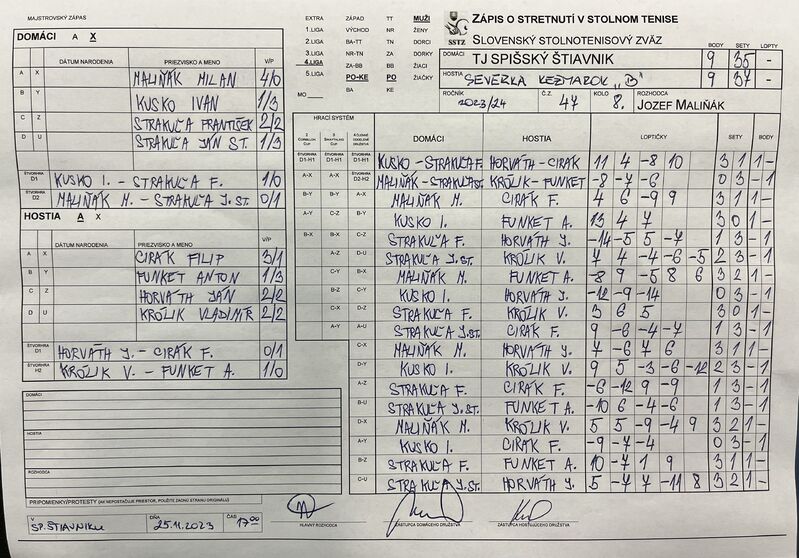 MAJSTROVSKÝ ZÁPAS
DOMÁCI A X
DÁTUM NARODENIA PRIEZVISKO A MENO V/P
A X MALIŇÁK MILAN 4/0
B Y KUSKO IVAN 1/3
C Z STRAKUĽA FRANTIŠEK 2/2
D U STRAKUĽA JÁN ST. 1/3
ŠTVORHRA D1 KUSKO I. - STRAKUĽA F. 1/0
ŠTVORHRA D2 MALIŇÁK M. - STRAKUĽA J.ST. 0/1
HOSTIA A X
DÁTUM NARODENIA PRIEZVISKO A MENO V/P
A X CIRÁK FILIP 3/1
B Y FUNKET ANTON 1/3
C Z HORVÁTH JÁN 2/2
D U KRÓLIK VLADIMÍR 2/2
ŠTVORHRA D1 HORVÁTH J. - CIRÁK F. 0/1
ŠTVORHRA H2 KRÓLIK V. - FUNKET A. 1/0
DOMÁCI
HOSTIA
ROZHODCA
PRIPOMIENKY/PROTESTY (AK NEPOSTAČUJE PRIESTOR, POUŽITE ZADNÚ STRANU ORIGINÁLU)
V SP. ŠTIAVNIKU DŇA 25.11.2023 ČAS 17:00
HLAVNÝ ROZHODCA
ZÁSTUPCA DOMÁCEHO DRUŽSTVA
ZÁSTUPCA HOSŤUJÚCEHO DRUŽSTVA
EXTRA ZÁPAD TT MUŽI
1.LIGA VÝCHOD NR ŽENY
2.LIGA BA-TT TN DORCI
3.LIGA NR-TN ZA DORKY
4.LIGA ZA-BB BB ŽIACI
5.LIGA PO-KE PO ŽIAČKY
MO BA KE
SSTZ
ZÁPIS O STRETNUTÍ V STOLNOM TENISE
SLOVENSKÝ STOLNOTENISOVÝ ZVÄZ
BODY SETY LOPTY
DOMÁCI TJ SPIŠSKÝ ŠTIAVNIK 9 35 -
HOSTIA SEVERKA KEŽMAROK "B" 9 37 -
ROČNÍK 2023/24 Č.Z. 47 KOLO 8. ROZHODCA JOZEF MALIŇÁK
HRACÍ SYSTÉM
DOMÁCI HOSTIA LOPTIČKY SETY BODY
D1-H1 D1-H1 D1-H1 KUSKO - STRAKUĽA F. HORVÁTH - CIRÁK 11 4 -8 10 3 1 1 -
A-X A-X D2-H2 MALIŇÁK - STRAKUĽA ST. KRÓLIK - FUNKET -8 -7 -6 0 3 - 1
B-Y B-Y A-X MALIŇÁK M. CIRÁK F. 4 6 -9 9 3 1 1 -
A-Y C-Z B-Y KUSKO I. FUNKET A. 13 4 7 3 0 1 -
B-X B-X C-Z STRAKUĽA F. HORVÁTH J. -14 -5 5 -7 1 3 - 1
A-Z D-U STRAKUĽA J.ST. KRÓLIK V. 7 4 -4 -6 -5 2 3 - 1
C-Y B-X MALIŇÁK M. FUNKET A. -8 9 -5 8 6 3 2 1 -
B-Z C-Y KUSKO I. HORVÁTH J. -12 -9 -14 0 3 - 1
C-X D-Z STRAKUĽA F. KRÓLIK V. 3 6 5 3 0 1 -
A-Y A-U STRAKUĽA J.ST. CIRÁK F. 9 -6 -4 -7 1 3 - 1
C-X MALIŇÁK M. HORVÁTH J. 7 -6 7 6 3 1 1 -
D-Y KUSKO I. KRÓLIK V. 9 5 -3 -6 -12 2 3 - 1
A-Z STRAKUĽA F. CIRÁK F. -6 -12 9 -9 1 3 - 1
B-U STRAKUĽA J.ST. FUNKET A. -10 6 -4 -6 1 3 - 1
D-X MALIŇÁK M. KRÓLIK V. 5 5 -9 -4 9 3 2 1 -
A-Y KUSKO I. CIRÁK F. -9 -7 -4 0 3 - 1
B-Z STRAKUĽA F. FUNKET A. 10 -7 1 9 3 1 1 -
C-U STRAKUĽA J.ST. HORVÁTH J. 5 -7 7 -11 8 3 2 1 -